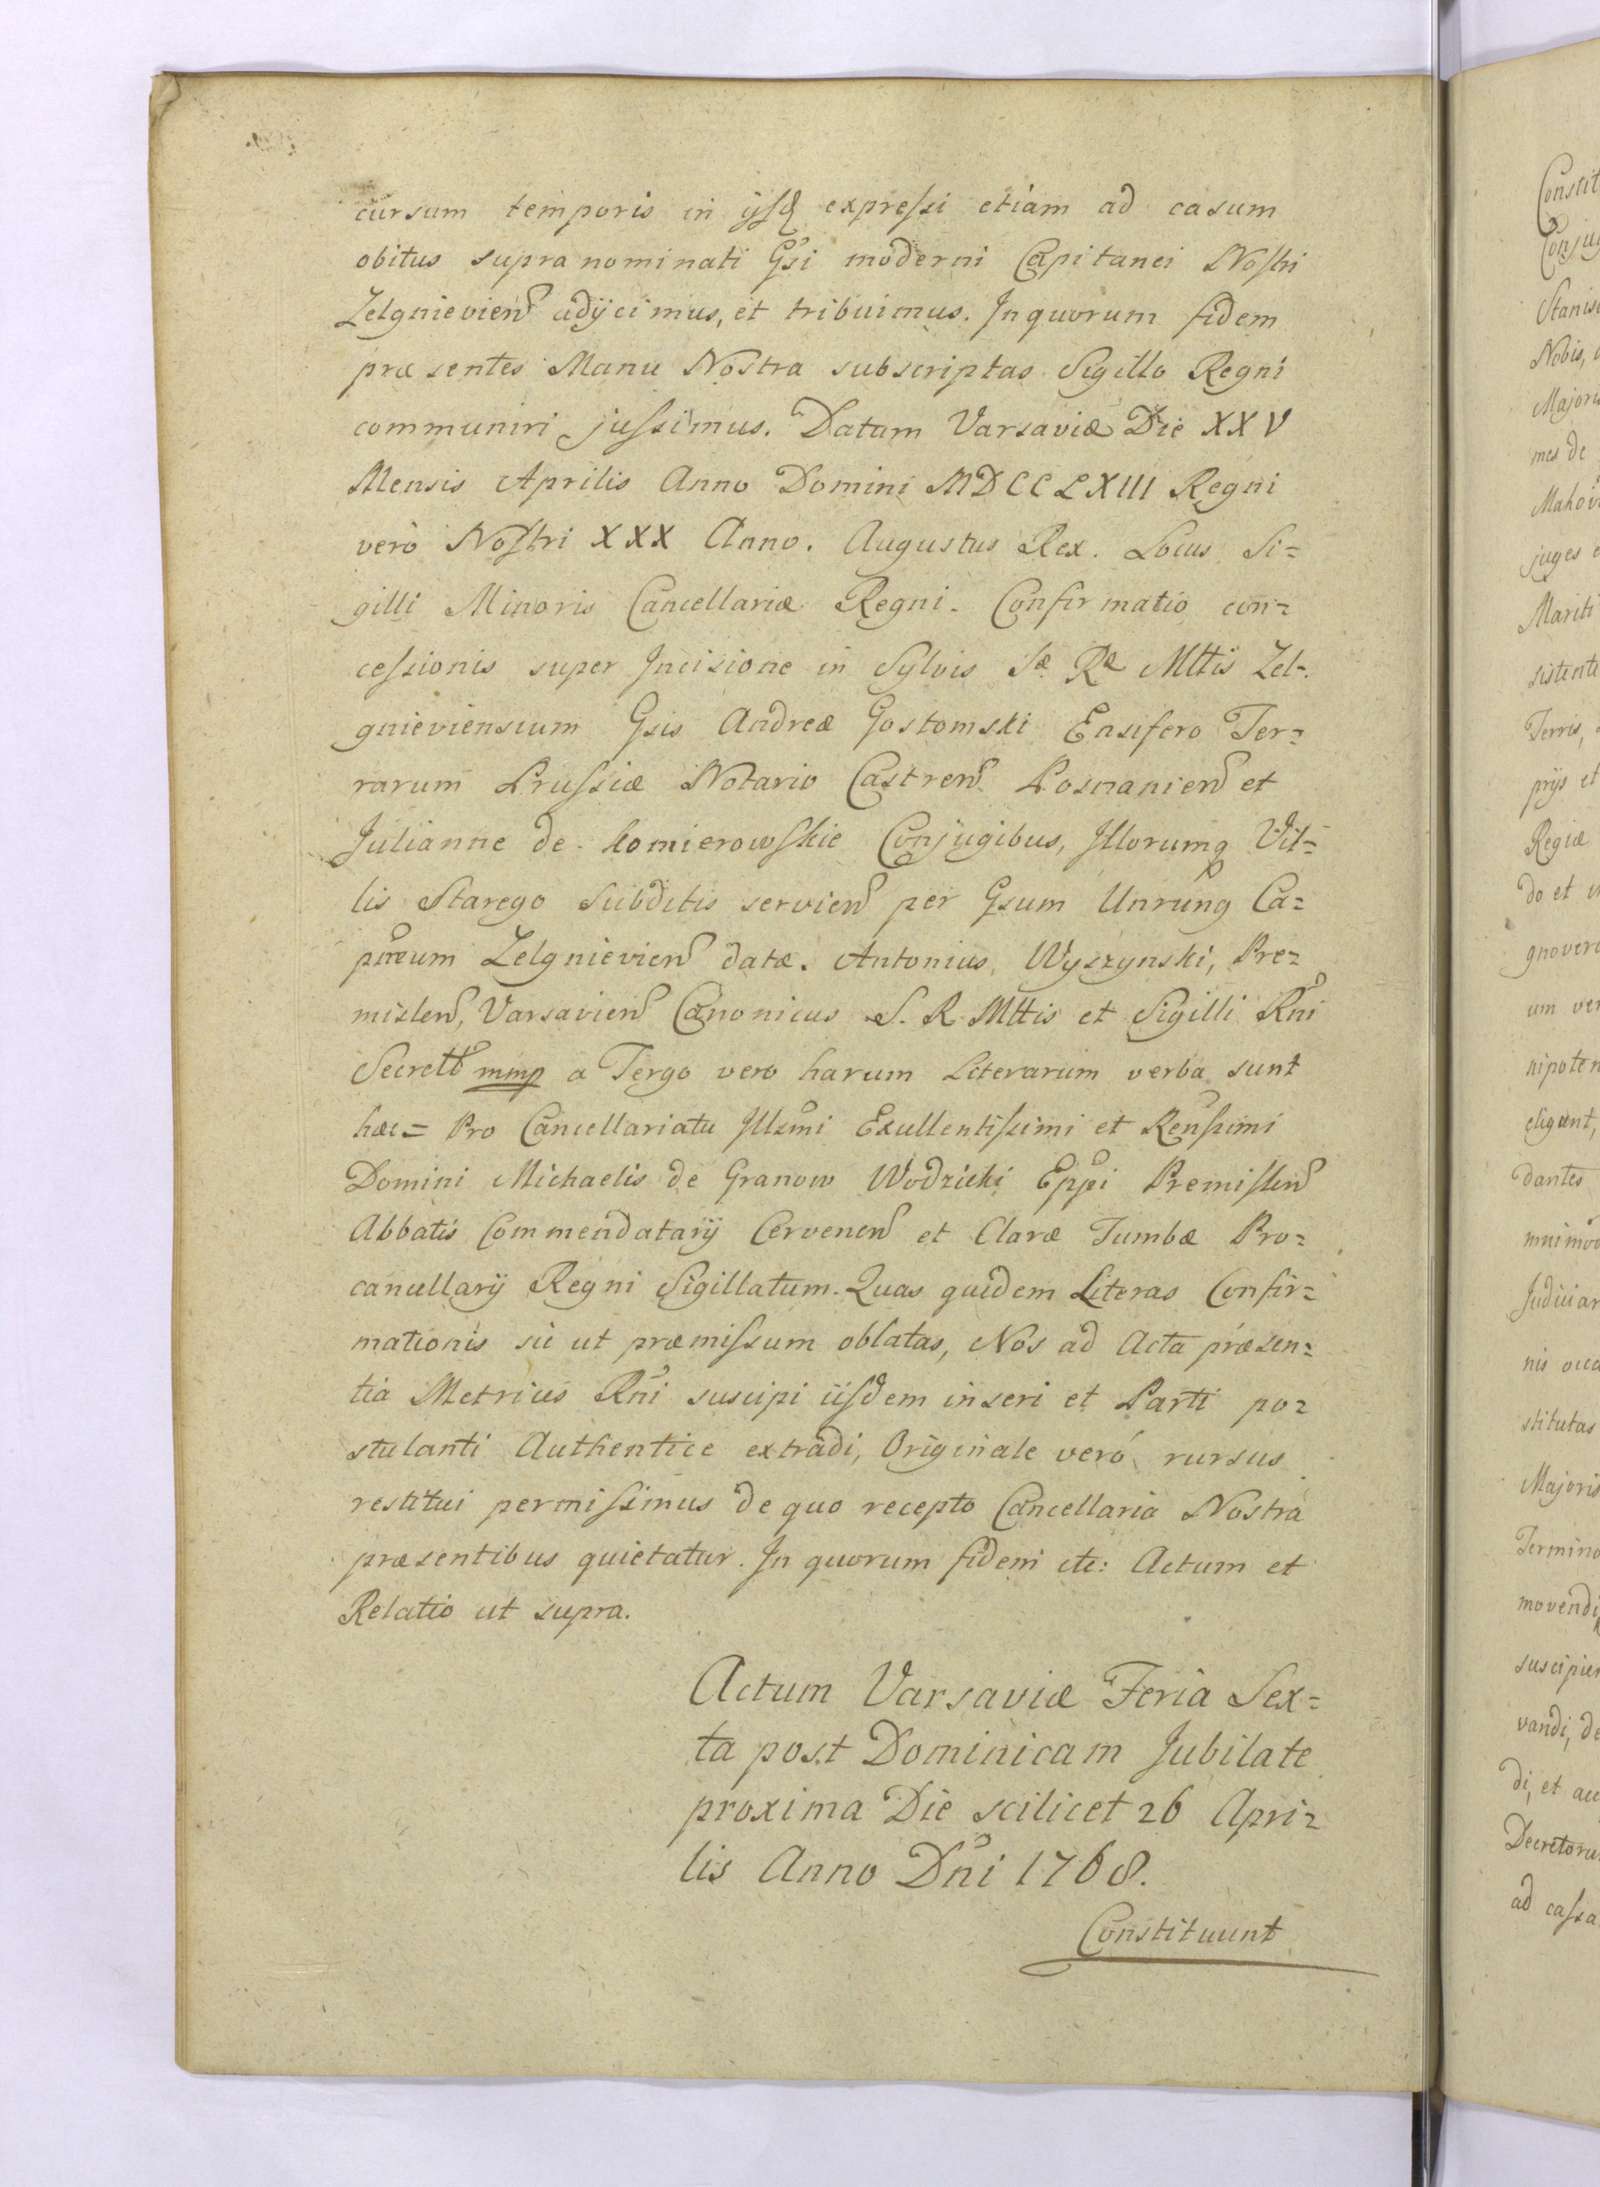 cursum temporis in ijsd expressi etiam ad casum
obitus supra nominati Gsi moderni Capitanei Nostri
Zelgnievien adijcimus, et tribuimus. In quorum fidem
præsentes Manu Nostra subscriptas Sigillo Regni
communiri jussimus. Datum Varsaviæ Die XXV
Mensis Aprilis Anno Domini MDCCLXIII Regni
vero Nostri XXX Anno. Augustus Rex. Locus Si=
gilli Minoris Cancellariæ Regni. Confirmatio con=
cessionis super Incisione in Sylvis Sæ Ræ Mttis Zel=
gnieviensium Gsis Andreæ Gostomski Ensifero Ter=
rarum Prussiæ Notario Castren Posnanien et
Julianne de Komierowskie Conjugibus, Illorumq Vil=
lis Starego Subditis servien per Gsum Unrung Ca=
pneum Zelgnievien datæ. Antonius Wyszynski, Pre=
mislen, Varsavien Canonicus S. R. Mttis et Sigilli Rni
Secrett mmp a Tergo vero harum Literarum verba sunt
hæc= Pro Cancellariatu Illsmi Excellentissimi et Renssimi
Domini Michaelis de Granow Wodzicki Eppi Premislien
Abbatis Commendatarij Cervenen et Claræ Tumbæ Pro=
cancellarij Regni Sigillatum. Quas quidem Literas Confir=
mationis sic ut præmissum oblatas, Nos ad Acta præsen=
tia Metrices Rni suscipi iisdem inseri et Parti po=
stulanti Authentice extradi, Originale vero rursus
restitui permissimus de quo recepto Cancellaria Nostra
præsentibus quietatur. In quorum fidem etc: Actum et
Relatio ut supra.
Actum Varsaviæ Feria Sex=
ta post Dominicam Jubilate
proxima Die scilicet 26 Apri=
lis Anno Dni 1768.
Constituunt
Constit
Conjug
Stanis
Nobis,
Majoris
mes de
Mahov
juges e
Mariti
sistente
Terris,
prijs et
Regiæ
do et
gnover
um ver
nipoten
eligunt,
dantes
mnimo
Judiciar
nis occa
stitutas
Majoris
Termino
movendi
suscipien
vandi, de
di, et
Decretoru
ad cassa